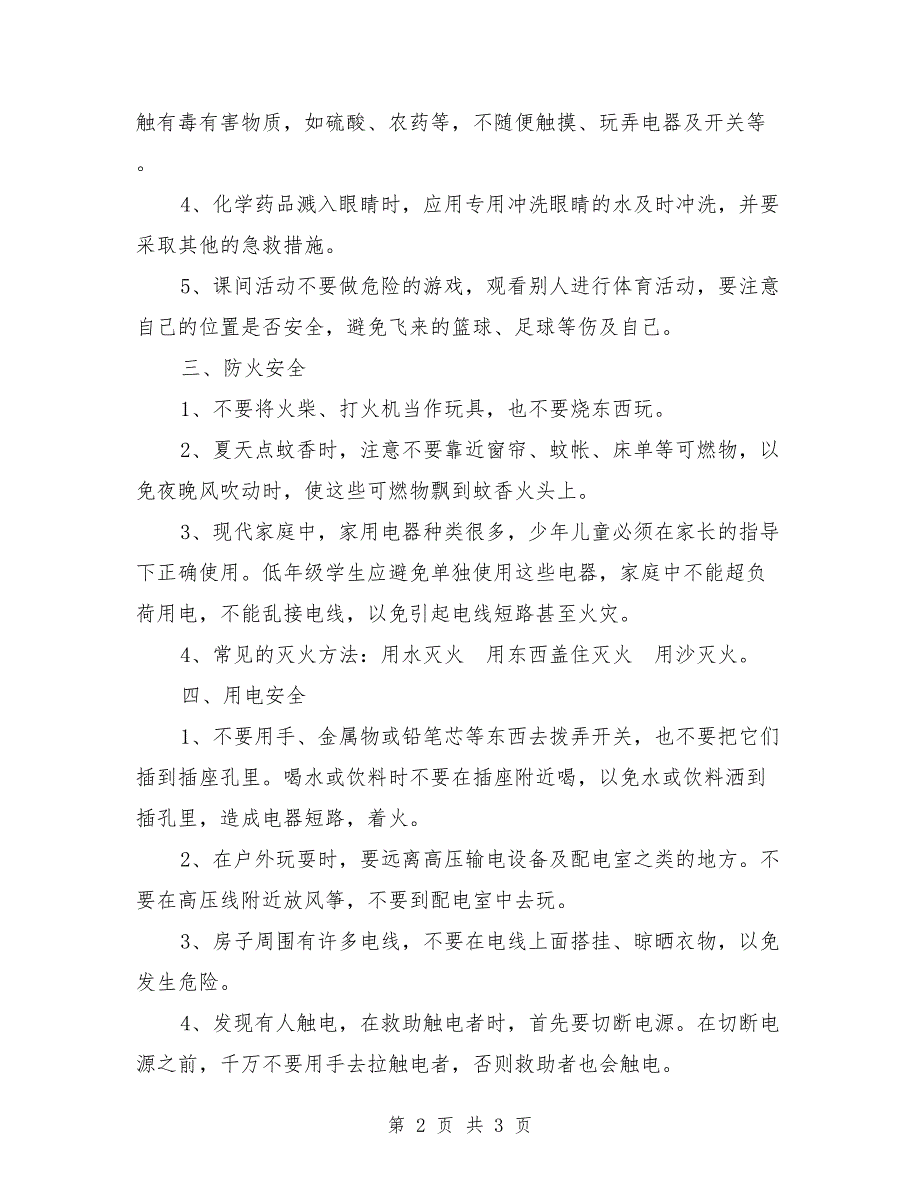 触有毒有害物质，如硫酸、农药等，不随便触摸、玩弄电器及开关等
。
4、化学药品溅入眼睛时，应用专用冲洗眼睛的水及时冲洗，并要
采取其他的急救措施。
5、课间活动不要做危险的游戏，观看别人进行体育活动，要注意
自己的位置是否安全，避免飞来的篮球、足球等伤及自己。
三、防火安全
1、不要将火柴、打火机当作玩具，也不要烧东西玩。
2、夏天点蚊香时，注意不要靠近窗帘、蚊帐、床单等可燃物，以
免夜晚风吹动时，使这些可燃物飘到蚊香火头上。
3、现代家庭中，家用电器种类很多，少年儿童必须在家长的指导
下正确使用。低年级学生应避免单独使用这些电器，家庭中不能超负
荷用电，不能乱接电线，以免引起电线短路甚至火灾。
4、常见的灭火方法：用水灭火　用东西盖住灭火　用沙灭火。
四、用电安全
1、不要用手、金属物或铅笔芯等东西去拨弄开关，也不要把它们
插到插座孔里。喝水或饮料时不要在插座附近喝，以免水或饮料洒到
插孔里，造成电器短路，着火。
2、在户外玩耍时，要远离高压输电设备及配电室之类的地方。不
要在高压线附近放风筝，不要到配电室中去玩。
3、房子周围有许多电线，不要在电线上面搭挂、晾晒衣物，以免
发生危险。
4、发现有人触电，在救助触电者时，首先要切断电源。在切断电
源之前，千万不要用手去拉触电者，否则救助者也会触电。
第 2 页 共 3 页